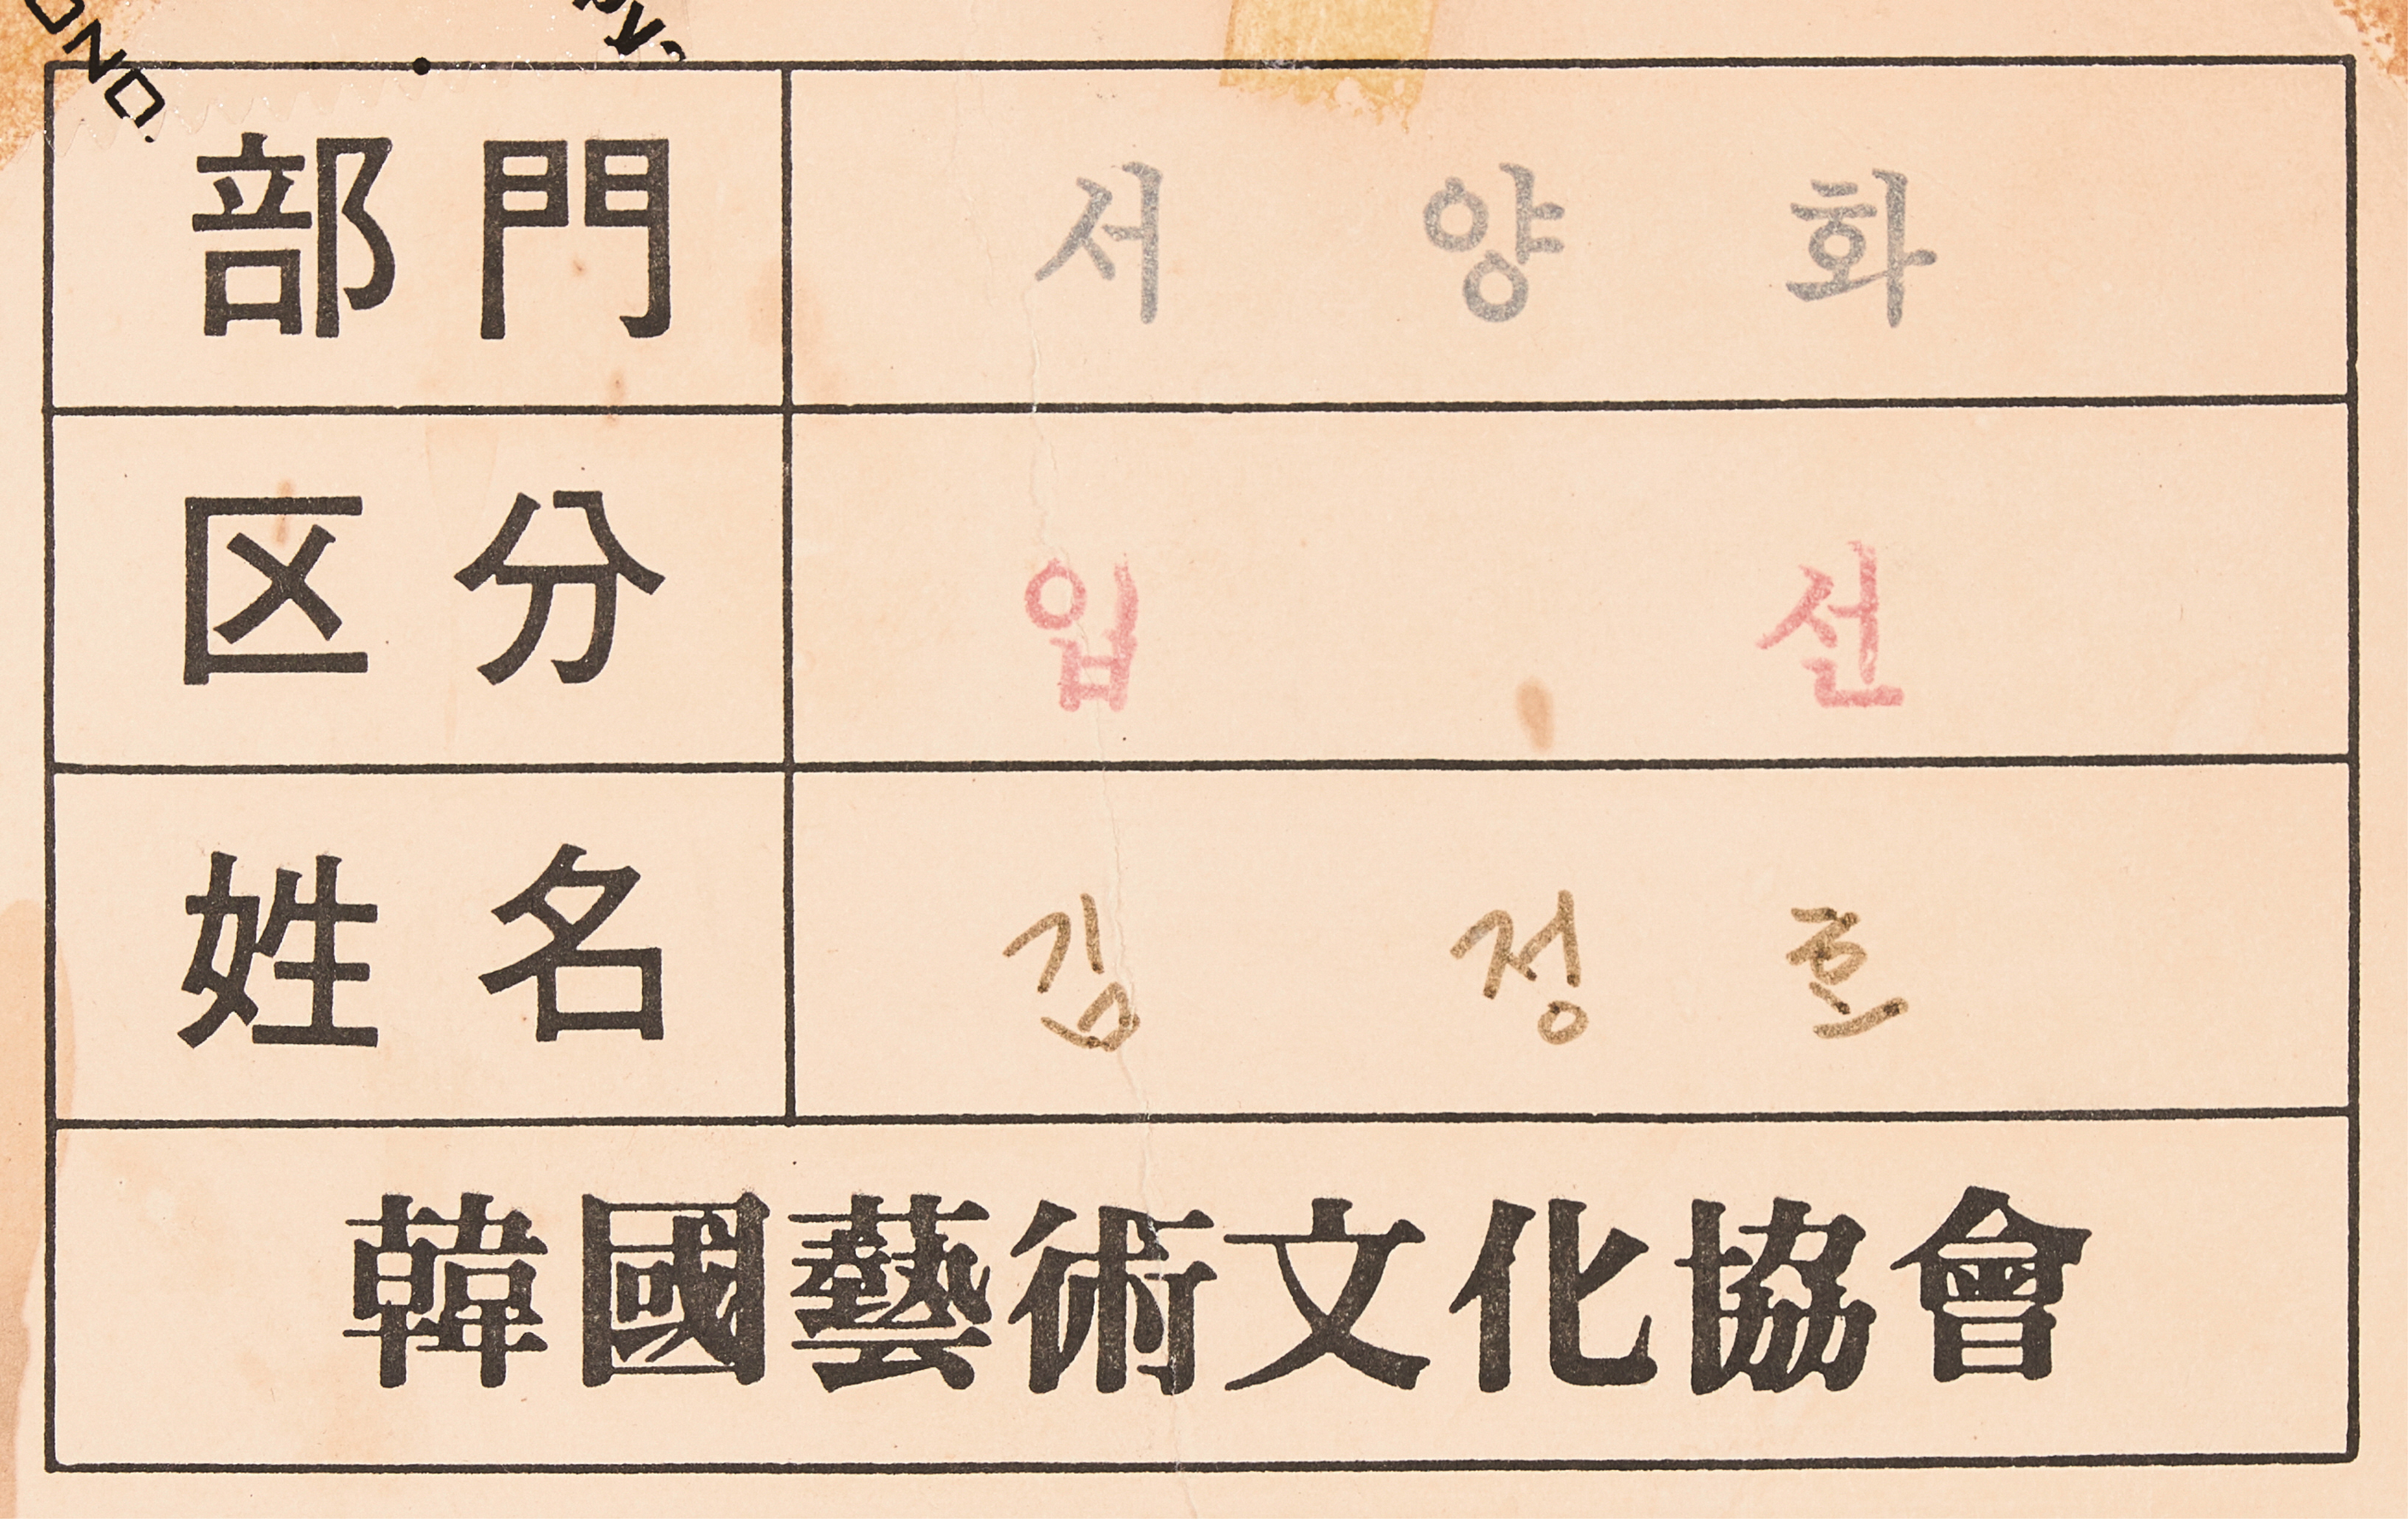 部門 서양화
区分 입선
姓名 김정호
韓國藝術文化協會